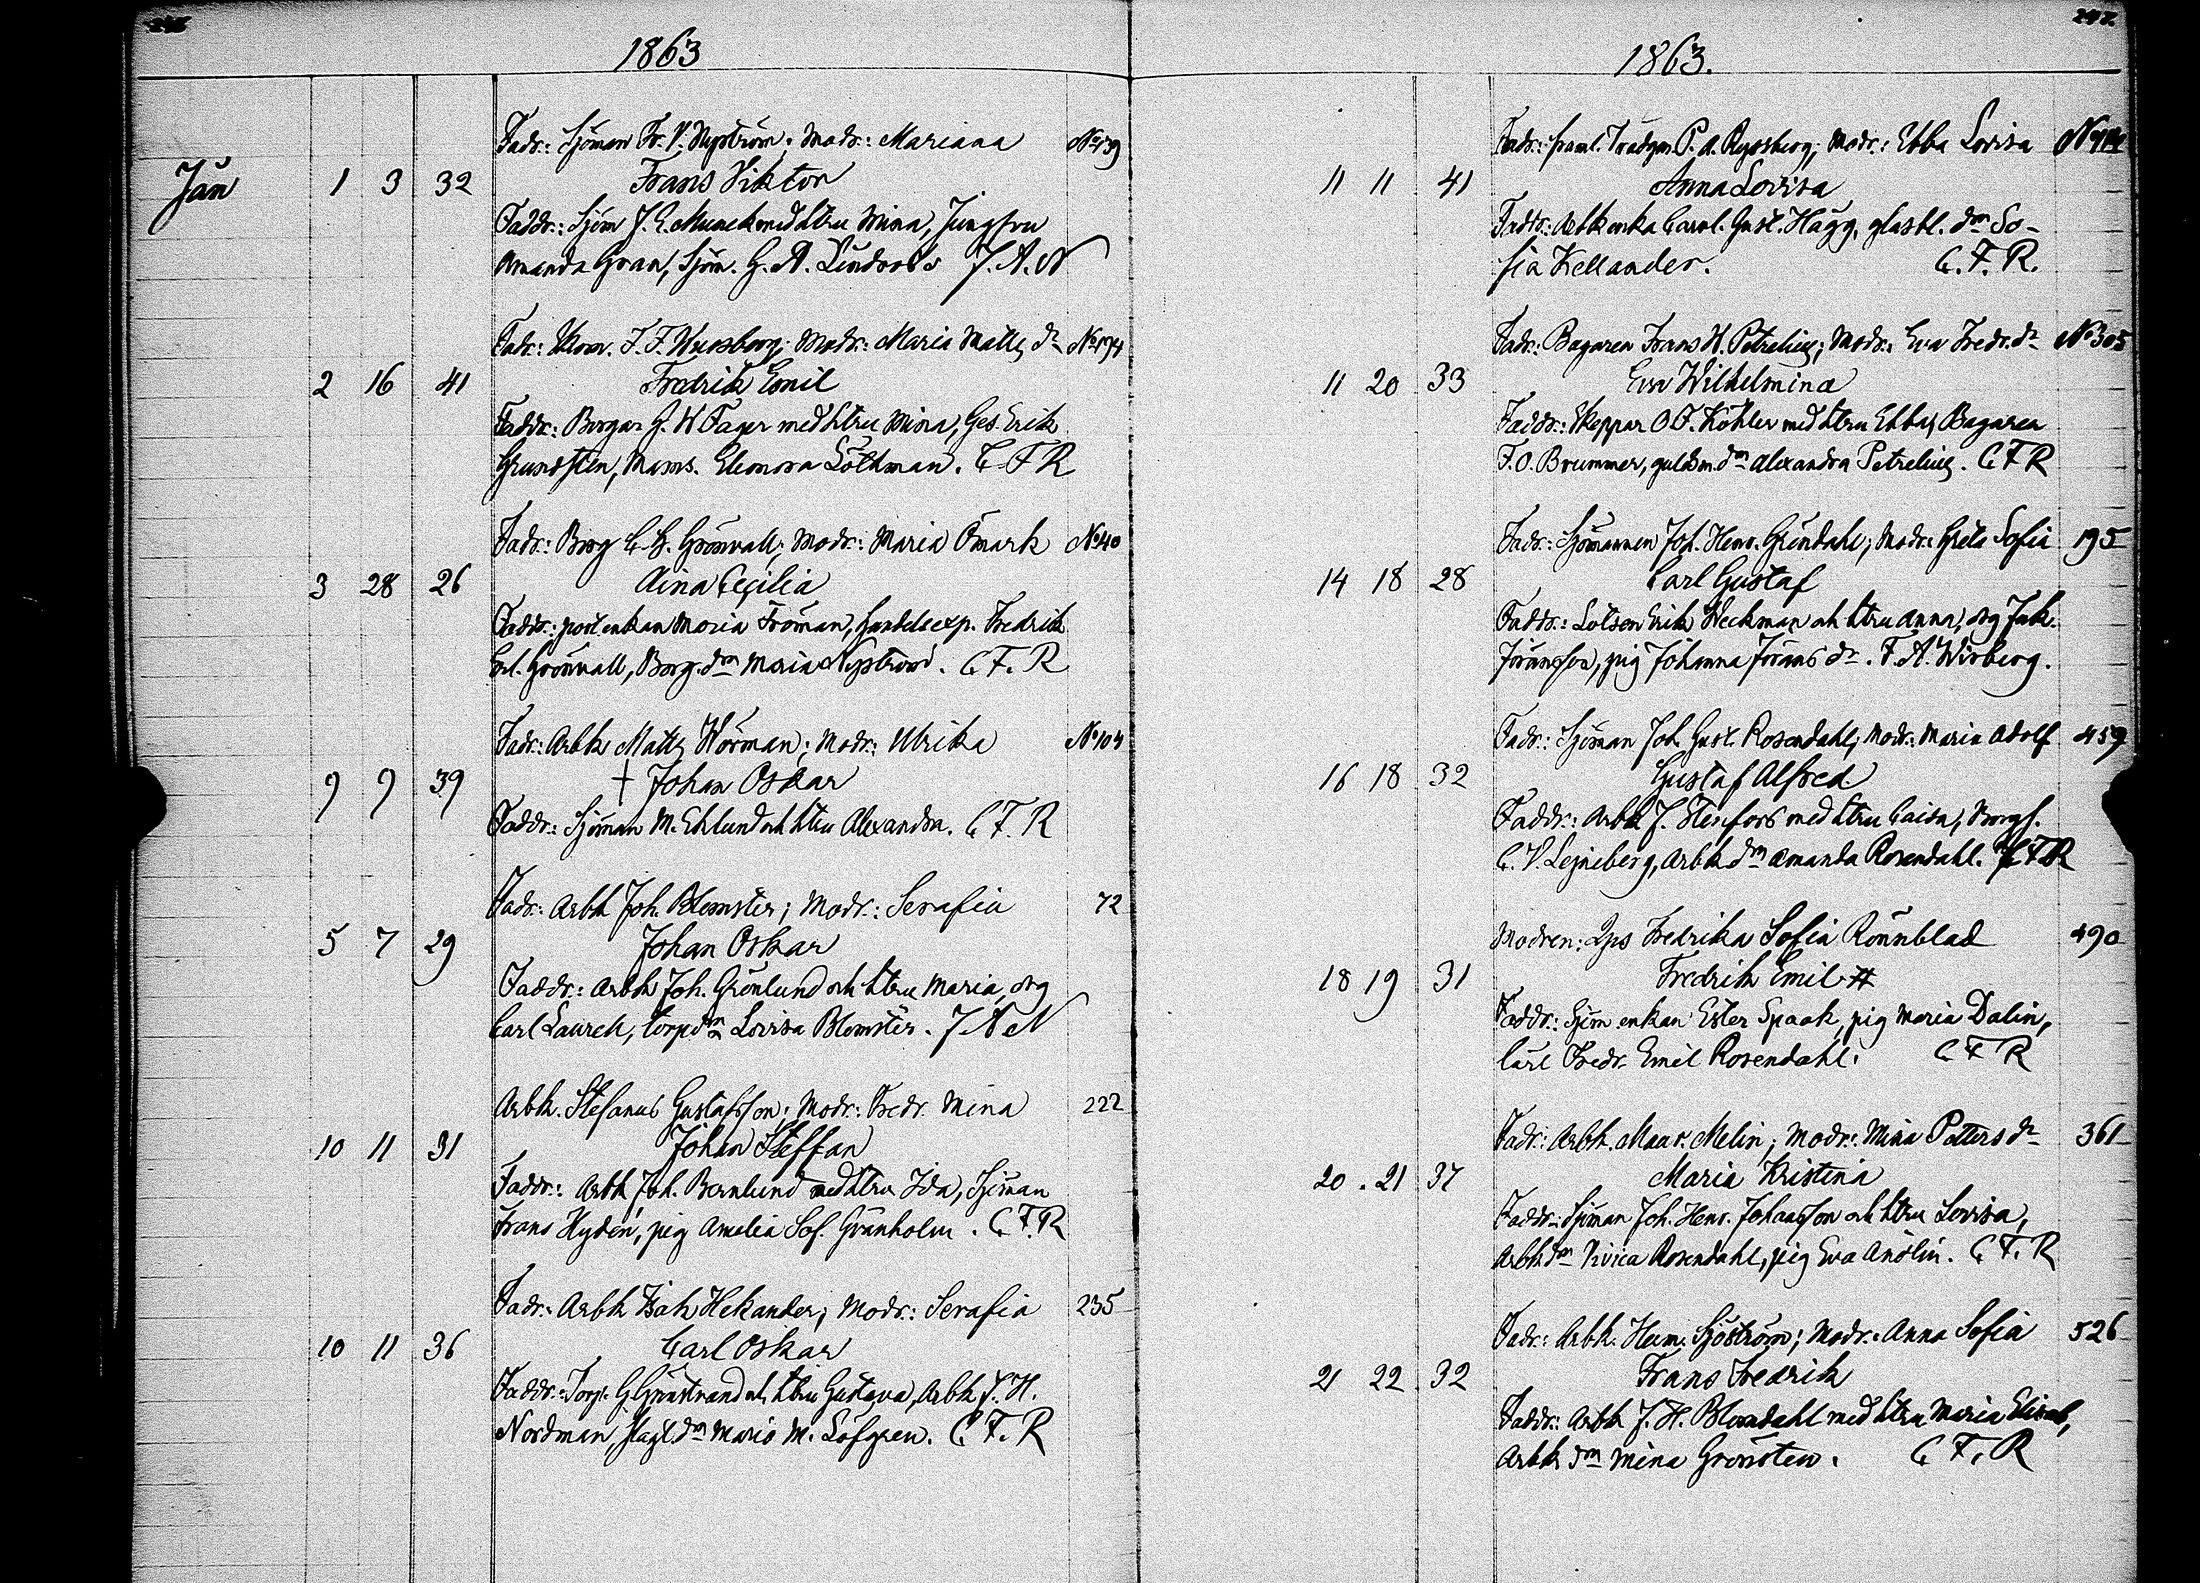 246
1863
Fadr: Sjöman Fr. V. Nyström; Modr: Mariana No 439
Jan 1 3 32 Frans Viktor
Faddr: Sjöm J. E. Munck med htru Mina, Jungfru
Amanda Gran, Sjöm. G. A. Lindroos J. A. N
Fadr: F. F. Wuosberg; Modr: Maria Matts dr
2 16 41 Fredrik Emil
Faddr: Borgar G. W Fager med htru Mina, Ges. Erik
Grundsten, Mams. Eleonora Löthman. C F R
Fadr: Borg C. G. Grönvall; Modr: Maria Ömark No 40
3 28 26 Aina Cecilia
Faddr: enkan Maria Fröman, handelsexp. Fredrik
Grönvall, Borg. dm Maria Nyström. C. F. R
Fadr: Arbk Matts Wörman; Modr: Ulrika No 104
9 9 39 † Johan Oskar
Faddr: Sjöman M. Ehlund och htru Alexandra. C. F. R
Fadr: Arbk Joh. Blomster; Modr: Serafia 72
5 7 29 Johan Oskar
Faddr: Arbk Joh. Grönlund och htru Maria, drg
Carl Laurell, torp dm Lovisa Blomster. J A N
Arbk. Stefanus Gustafsson; Modr: Fredr. Mina 222
10 11 31 Johan Steffan
Faddr: Arbk Joh. Bernlund med htru Ida, Sjöman
Frans Hydén, pig Amelia Sof. Grönholm. C. F. R
Fadr: Arbk Isak Hekander; Modr: Serafia 235
10 11 36 Carl Oskar
Faddr: Torp. G. Grönstrand och htru Gustava, Arbk J. H.
Nordman, slagt. dm Maria M. Löfgren. C. F. R
247
1863.
Fadr: framl. Trädgm P. A. Rygsberg; Modr: Ebba Lovisa
11 11 41 Anna Lovisa
Faddr: Arbk enka Carol. Gust. Hägg, glasbl. dm So-
fia Kellander. C. F. R.
Fadr: Bagaren Frans W. Petrelius; Modr: Eva Fredr. dr No 305
11 20 33 Eva Wilhelmina
Faddr: Skeppar O. F. Köhler med htru Ebba, Bagaren
F. O. Brummer, guldsm. dm Alexandra Petrelius. C F R
Fadr: Sjömannen Joh. Henr. Gröndahl; Modr: Greta Sofia 195
14 18 28 Carl Gustaf
Faddr: Lotsen Erik Weckman och htru Anna, drg Jak.
Jöransson, pig Johanna Jörans dr. F. A. Wirberg.
Fadr: Sjöman Joh. Gust. Rosendahl; Modr: Maria Adolf 459
16 18 32 Gustaf Alfred
Faddr: Arbk J. Stenfors med htru Caisa, Borgs.
C. V. Lejneberg, Arbk dm Amanda Rosendahl. C F R
Modren: Qps Fredrika Sofia Rönnblad 490
18 19 31 Fredrik Emil #
Faddr: Sjöm enkan Ester Spaak, pig Maria Dalin,
Carl Fredr. Emil Rosendahl. C F R
Fadr: Arbk. Maur. Melin; Modr: Mina Petters dr 361
20 21 37 Maria Kristina
Faddr: Sjöman Joh. Henr. Johansson och htru Lovisa,
Arbk dm Vivica Rosendahl, pig Eva Andlin. C. F. R
Fadr: Arbk. Herm. Sjöström; Modr: Anna Sofia 526
21 22 32 Frans Fredrik
Faddr: Arbk J. H. Blomdahl med htru Maria Elisab,
Arbk dm Mina Grönsten. C. F. R